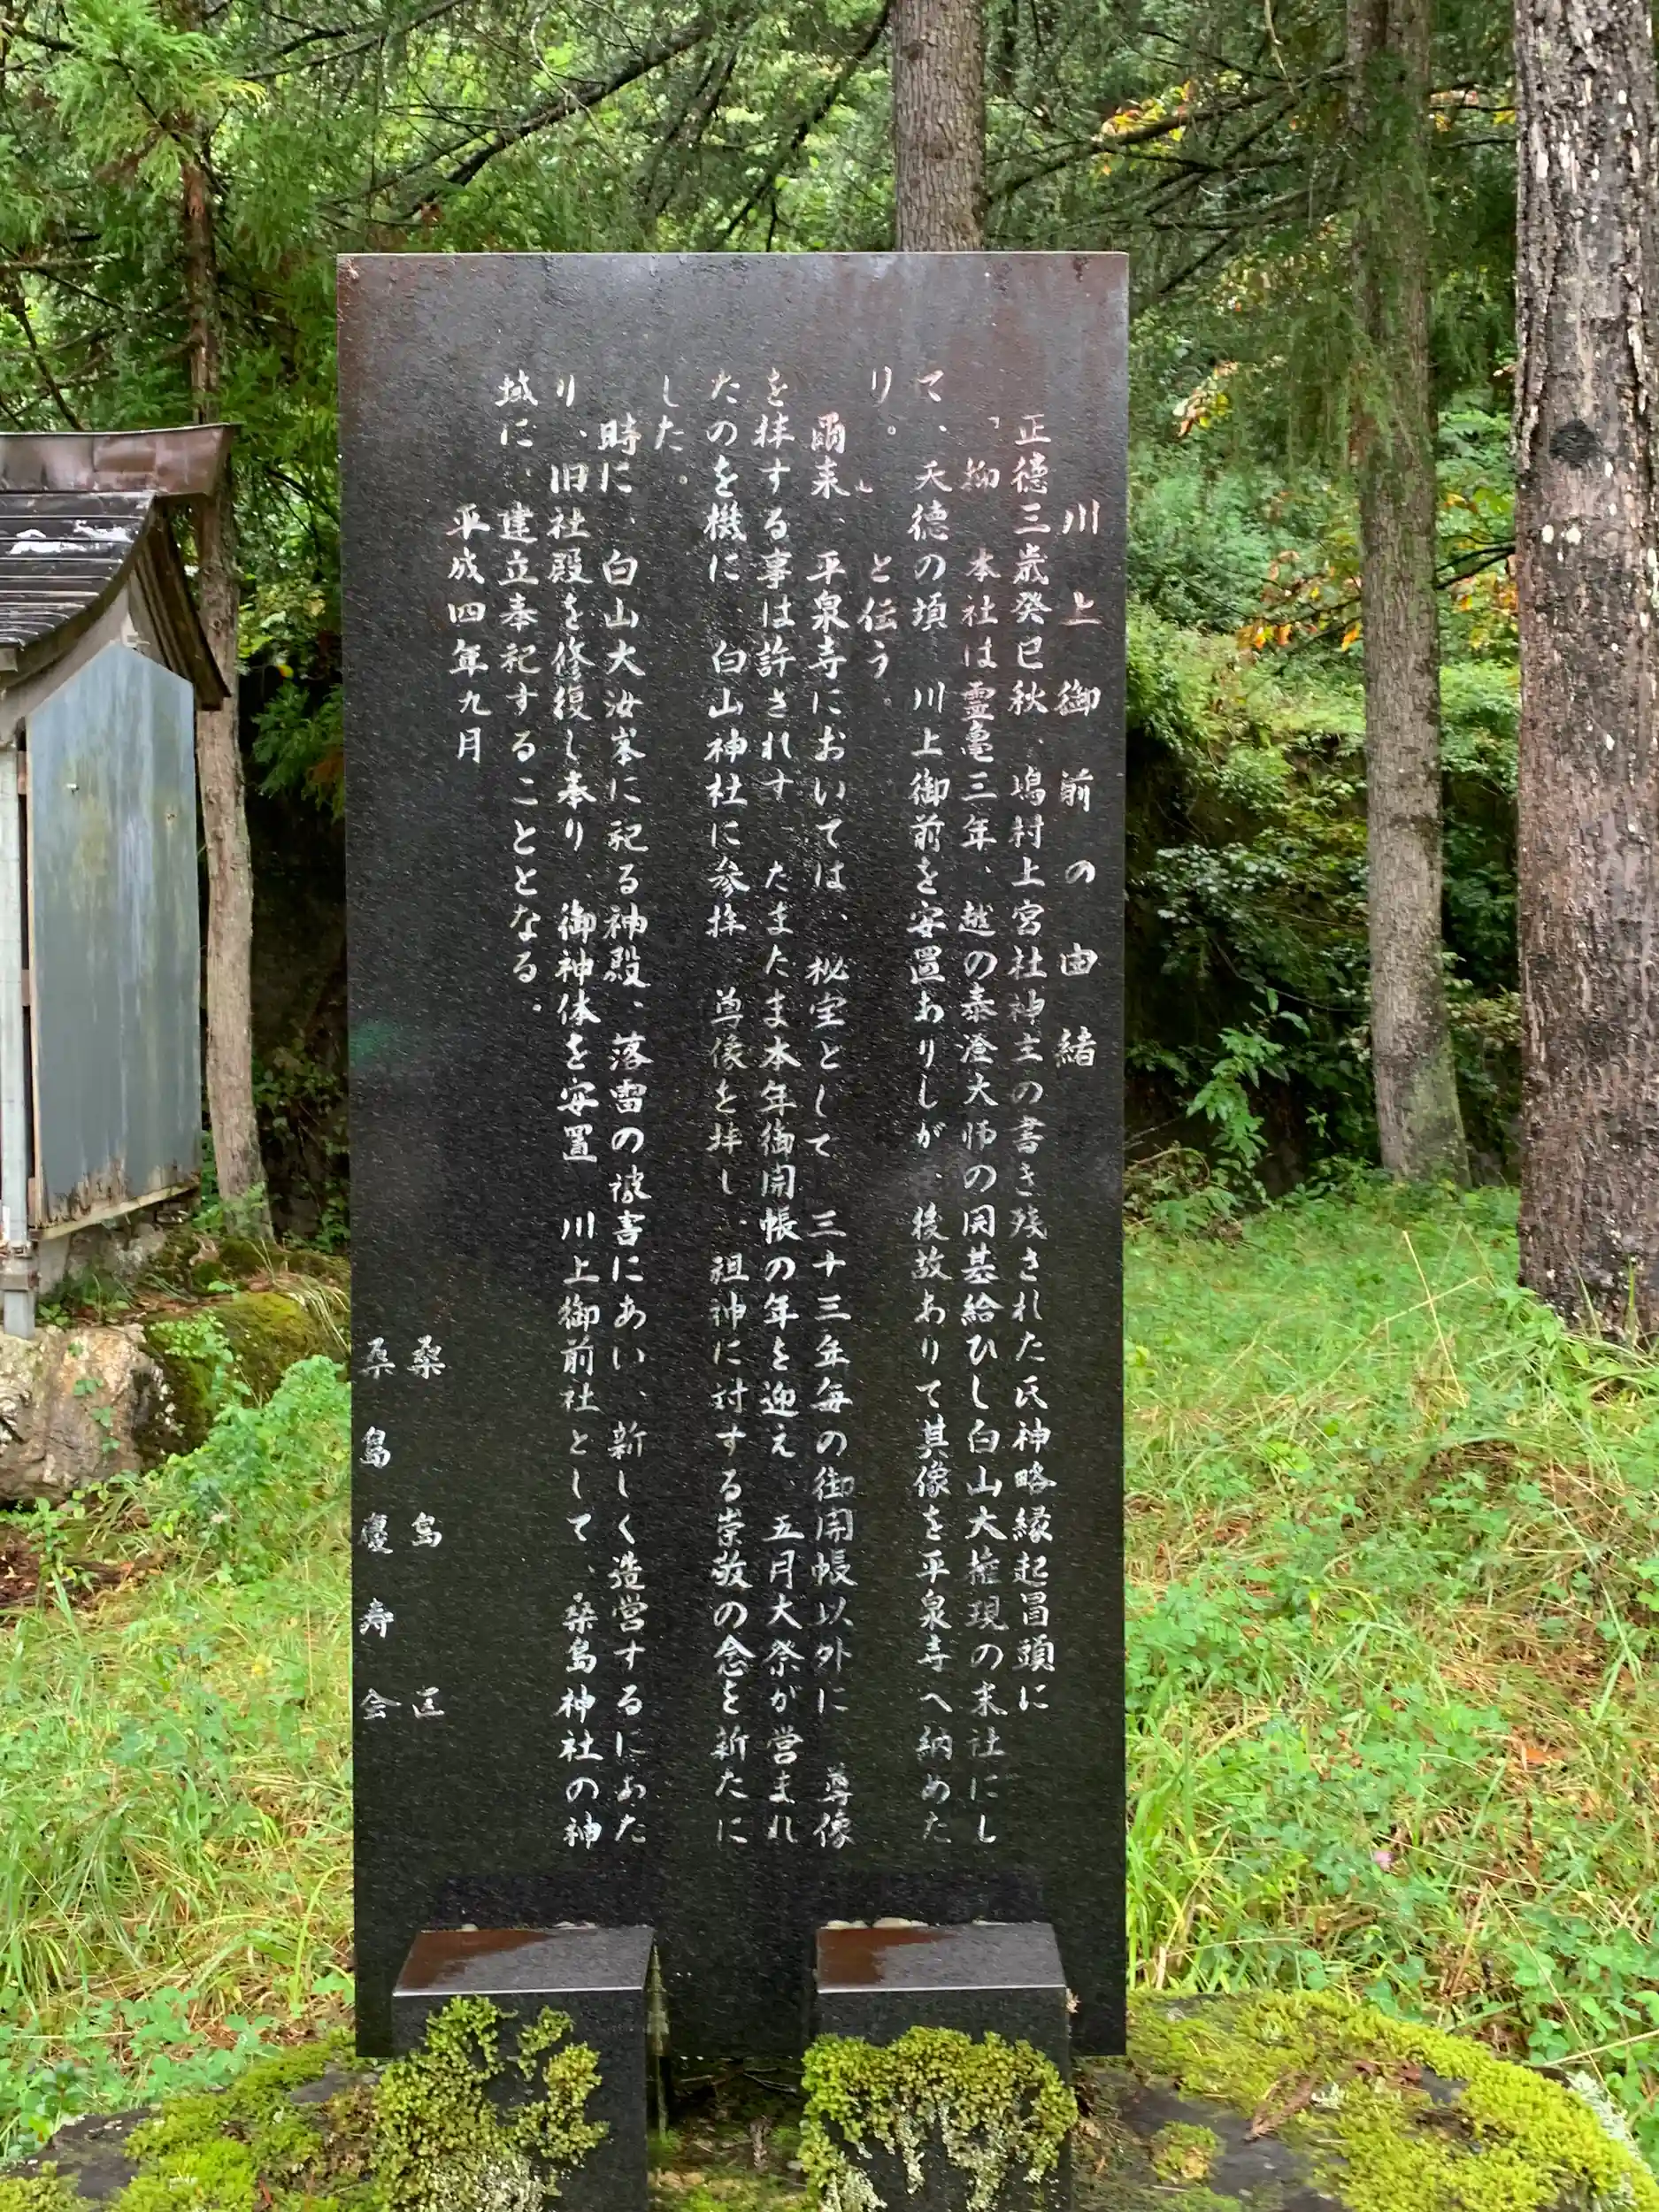 川上御前の由緒
正徳三歳癸巳秋、嶋村上宮社神主の書き残された氏神略縁起冒頭に
「抑 本社は霊亀三年、越の泰澄大師の開基給ひし白山大権現の末社にし
て、天徳の頃 川上御前を安置ありしが、後故ありて其像を平泉寺へ納めた
り。」と伝う。
爾来、平泉寺においては、秘宝として 三十三年毎の御開帳以外に 尊像
を拝する事は許されず たまたま本年御開帳の年を迎え、五月大祭が営まれ
たのを機に、白山神社に参拝 尊像を拝し、祖神に対する崇敬の念を新たに
した。
時に、白山大汝峯に祀る神殿、落雷の被害にあい、新しく造営するにあた
り、旧社殿を修復し奉り、御神体を安置 川上御前社として、桑島神社の神
域に、建立奉祀することとなる。
平成四年九月
桑島区
桑島慶寿会